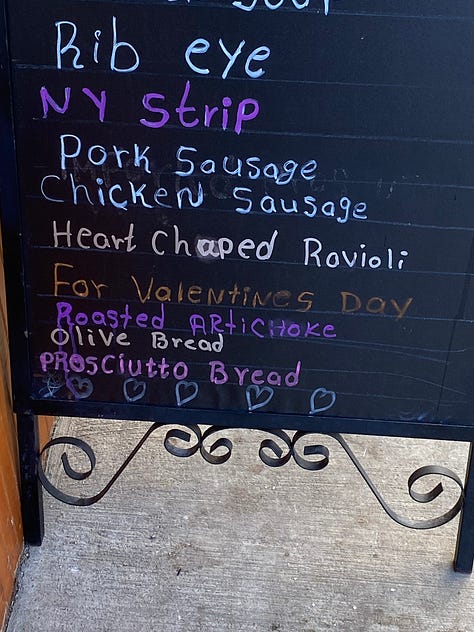 Rib eye
NY Strip
Pork Sausage
Chicken Sausage
Heart Chaped Ravioli
For Valentines Day
Roasted ARtiCHOKE
Olive Bread
PROSCiutto Bread